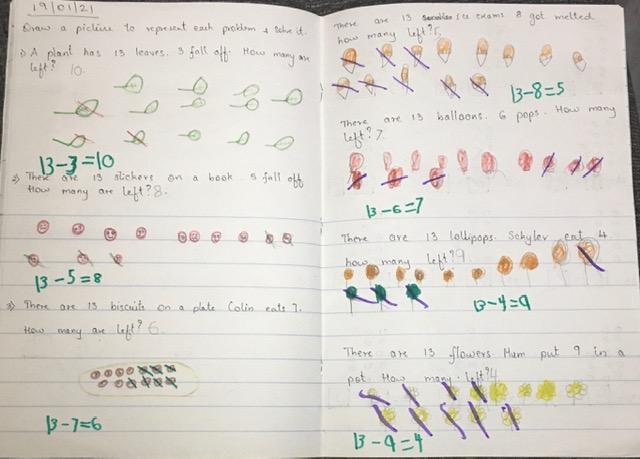 19/01/21
Draw a picture to represent each problem & solve it.
1) A plant has 13 leaves. 3 fall off. How many are
left? 10.
13-3=10
2) There are 13 stickers on a book 5 fall off
How many are left? 8.
13-5=8
3) There are 13 biscuits on a plate Colin eats 7.
How many are left? 6
13-7=6
There are 13 ice creams 8 got melted
how many left? 5
13-8=5
There are 13 balloons. 6 pops. How many
left? 7
13-6=7
There are 13 lollipops. Schyler eat 4
how many left? 9
13-4=9
There are 13 flowers Mum put 9 in a
pot. How many left? 4
13-9=4